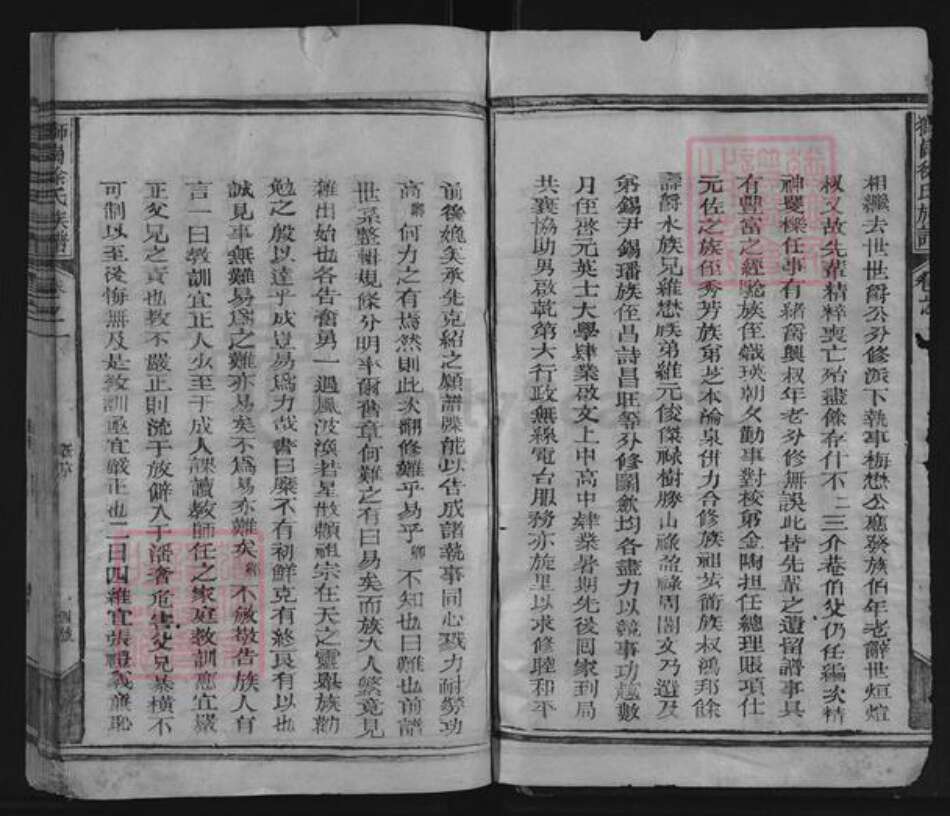 相繼去世世爵公分修派下執事梅懋公應發族伯年老辭世烜煊
叔又故先輩精粹喪亡殆盡餘存什不一二三介菴伯父仍任編次精
神矍樂任事有緒喬興叔年老分修無誤此皆先輩之遺留譜事具
有豐富之經驗族侄熾瑛朝夕勤事對校男金陶担任總理賬項仕
元佐之族侄秀芳族弟芝本淪泉併力合修族祖 族叔鴻邦餘
壽爵水族兄維懋族弟維元俊傑祿樹勝山祿 祿周閣文乃 及
男錫尹錫璠族侄昌詩昌旺等分修闔 均各盡力以競事功 數
月侄啓元英士大學肄業啟文上中高中肄業暑期先後回家到局
共襄協助男啟乾第六行政無線電台服務亦旋里以求修睦和平
前後媲美承先克紹之願譜牒能以告成諸執事同心戮力耐勞功
高 何力之有焉然則此次翻修難乎易乎 不知也曰難也前譜
世系整輯規條分明率爾舊章何難之有曰易矣而族大人繁竟見
雜出始也各告奮勇一遇風波渙若星散賴祖宗在天之靈舉族勸
勉之殷以達乎成豈易爲力哉書曰靡不有初鮮克有終良有以也
誠見事無難易爲之難亦易矣不爲易亦難矣 不敏敬告族人有
言一曰教訓宜正人少至于成人課讀教師任之家庭教訓應宜嚴
正父兄之責也教不嚴正則流于放僻入于 奢危害父兄暴橫不
可制以至後悔無及是教訓亟宜嚴正也二曰四維宜張禮義廉恥
獅岡徐氏族譜
卷之一